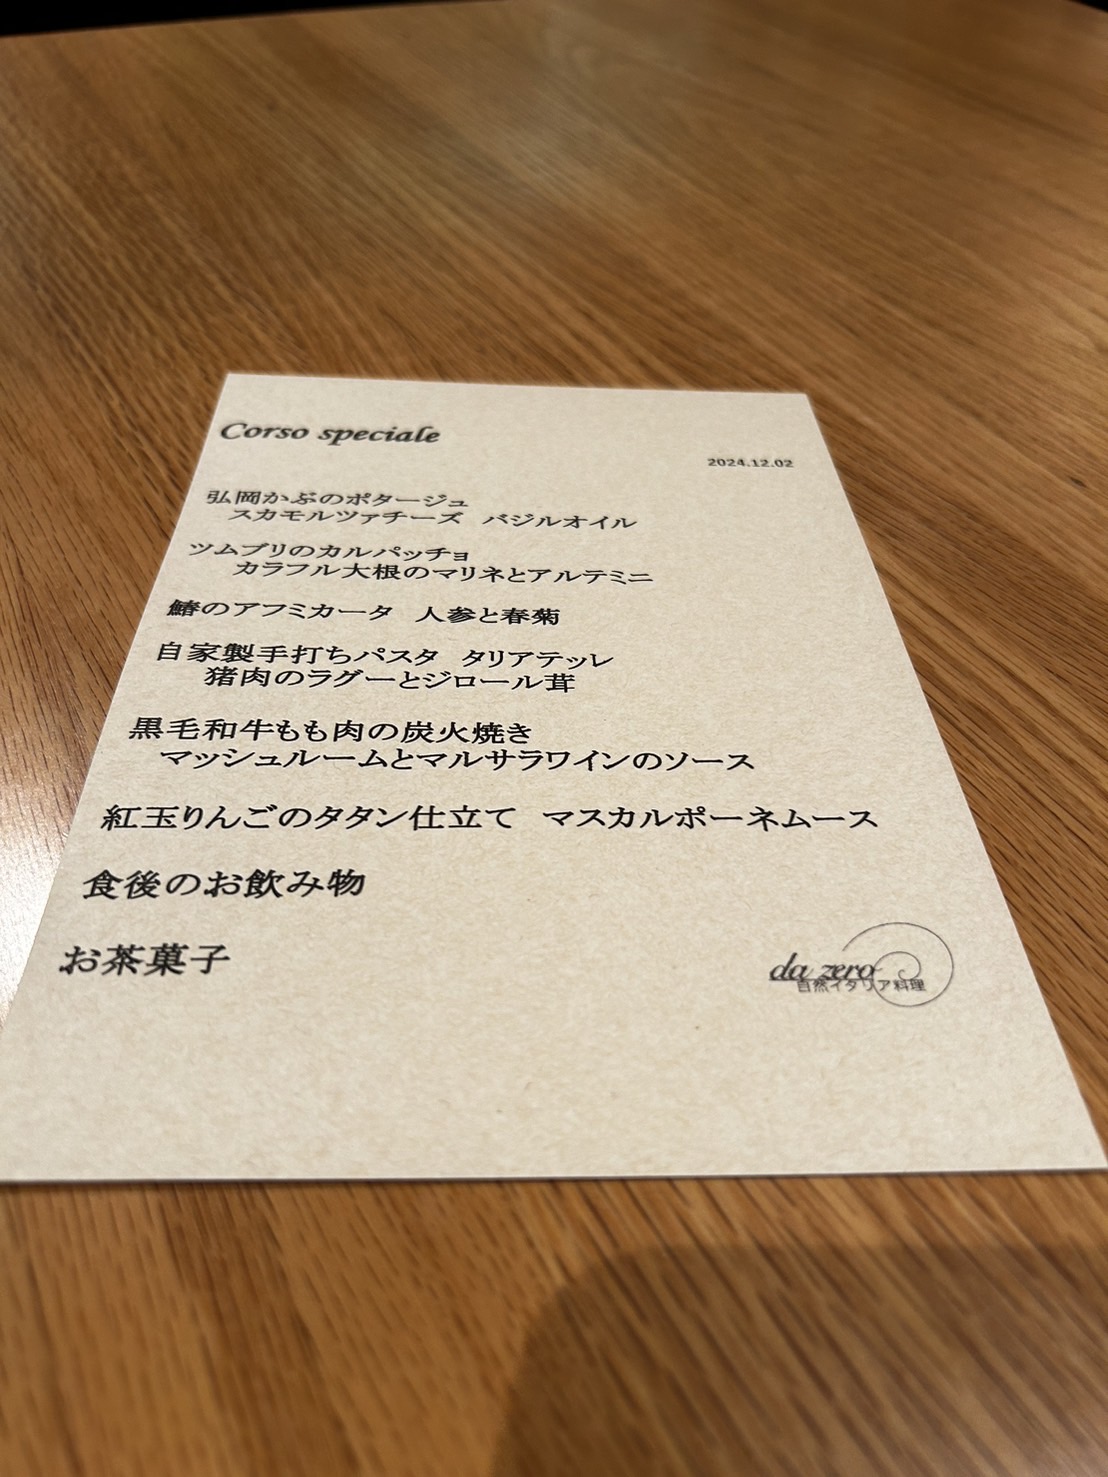 Corso speciale
2024.12.02
弘岡かぶのポタージュ
スカモルツァチーズ　バジルオイル
ツムブリのカルパッチョ
カラフル大根のマリネとアルテミニ
鰆のアフミカータ　人参と春菊
自家製手打ちパスタ　タリアテッレ
猪肉のラグーとジロール茸
黒毛和牛もも肉の炭火焼き
マッシュルームとマルサラワインのソース
紅玉りんごのタタン仕立て　マスカルポーネムース
食後のお飲み物
お茶菓子
da zero
自然イタリア料理